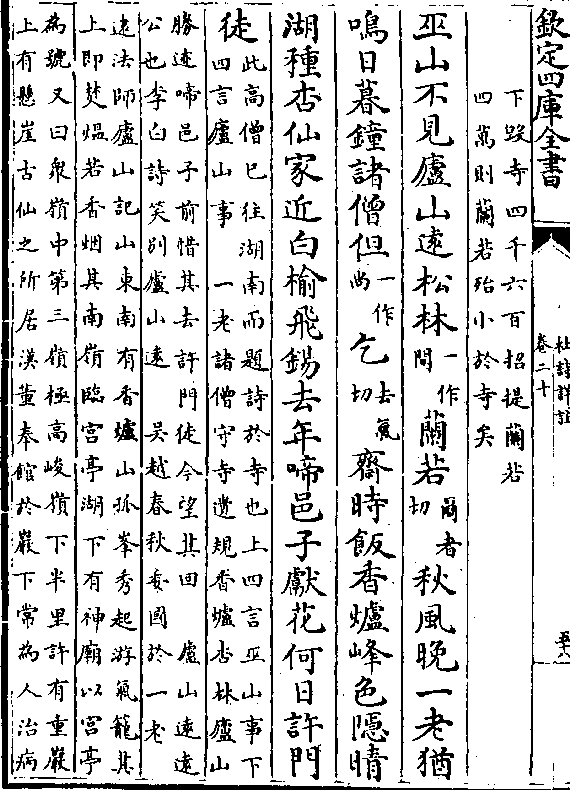 欽定四庫全書
杜詩詳註
卷二十
五十八
下毀寺四千六百招提蘭若
四萬則蘭若殆小於寺矣
巫山不見廬山遠松林一作問蘭若爾者切秋風晚一老猶
鳴日暮鐘諸僧但一作尚乞去氣切齋時飯香爐峰色隱晴
湖種杏仙家近白榆飛錫去年啼邑子獻花何日許門
徒此高僧已往湖南而題詩於寺也上四言巫山事下
四言廬山事　一老諸僧守寺遺規香爐杏林廬山
勝迹啼邑子前惜其去許門徒今望其回　廬山遠遠
公也李白詩笑別廬山遠　吳越春秋委國於一老
遠法師廬山記山東南有香爐山孤峯秀起游氣籠其
上即焚熅若香烟其南嶺臨宮亭湖下有神廟以宮亭
為號又曰衆嶺中第三嶺極高峻嶺下半里許有重巖
上有懸崖古仙之所居漢董奉館於巖下常為人治病